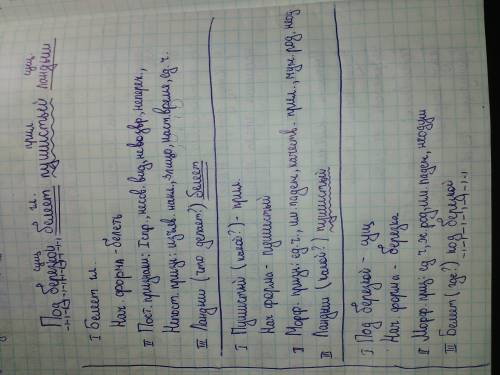 сущ. гл. прил. сущ.
Под березой белеет пушистый ландыш
I Белеет гл.
Нач. форма - белеть
II Пост. признаки: I спр., несов. вид, невозвр., неперех.,
Непост. призн: изъяв. накл., 3 лицо, наст. время, ед. ч.
III Ландыш (что делает?) белеет
I Пушистый (какой?) - прил.
Нач форма - пушистый
II Морф. призн: ед. ч., им. падеж, качеств. прил., муж. род,
III Ландыш (какой?) пушистый
I Под березой - сущ
Нач форма - березка
II Морф. приз: ед. ч, ж. род, падеж, неодуш
III Белеет (где?) под березой